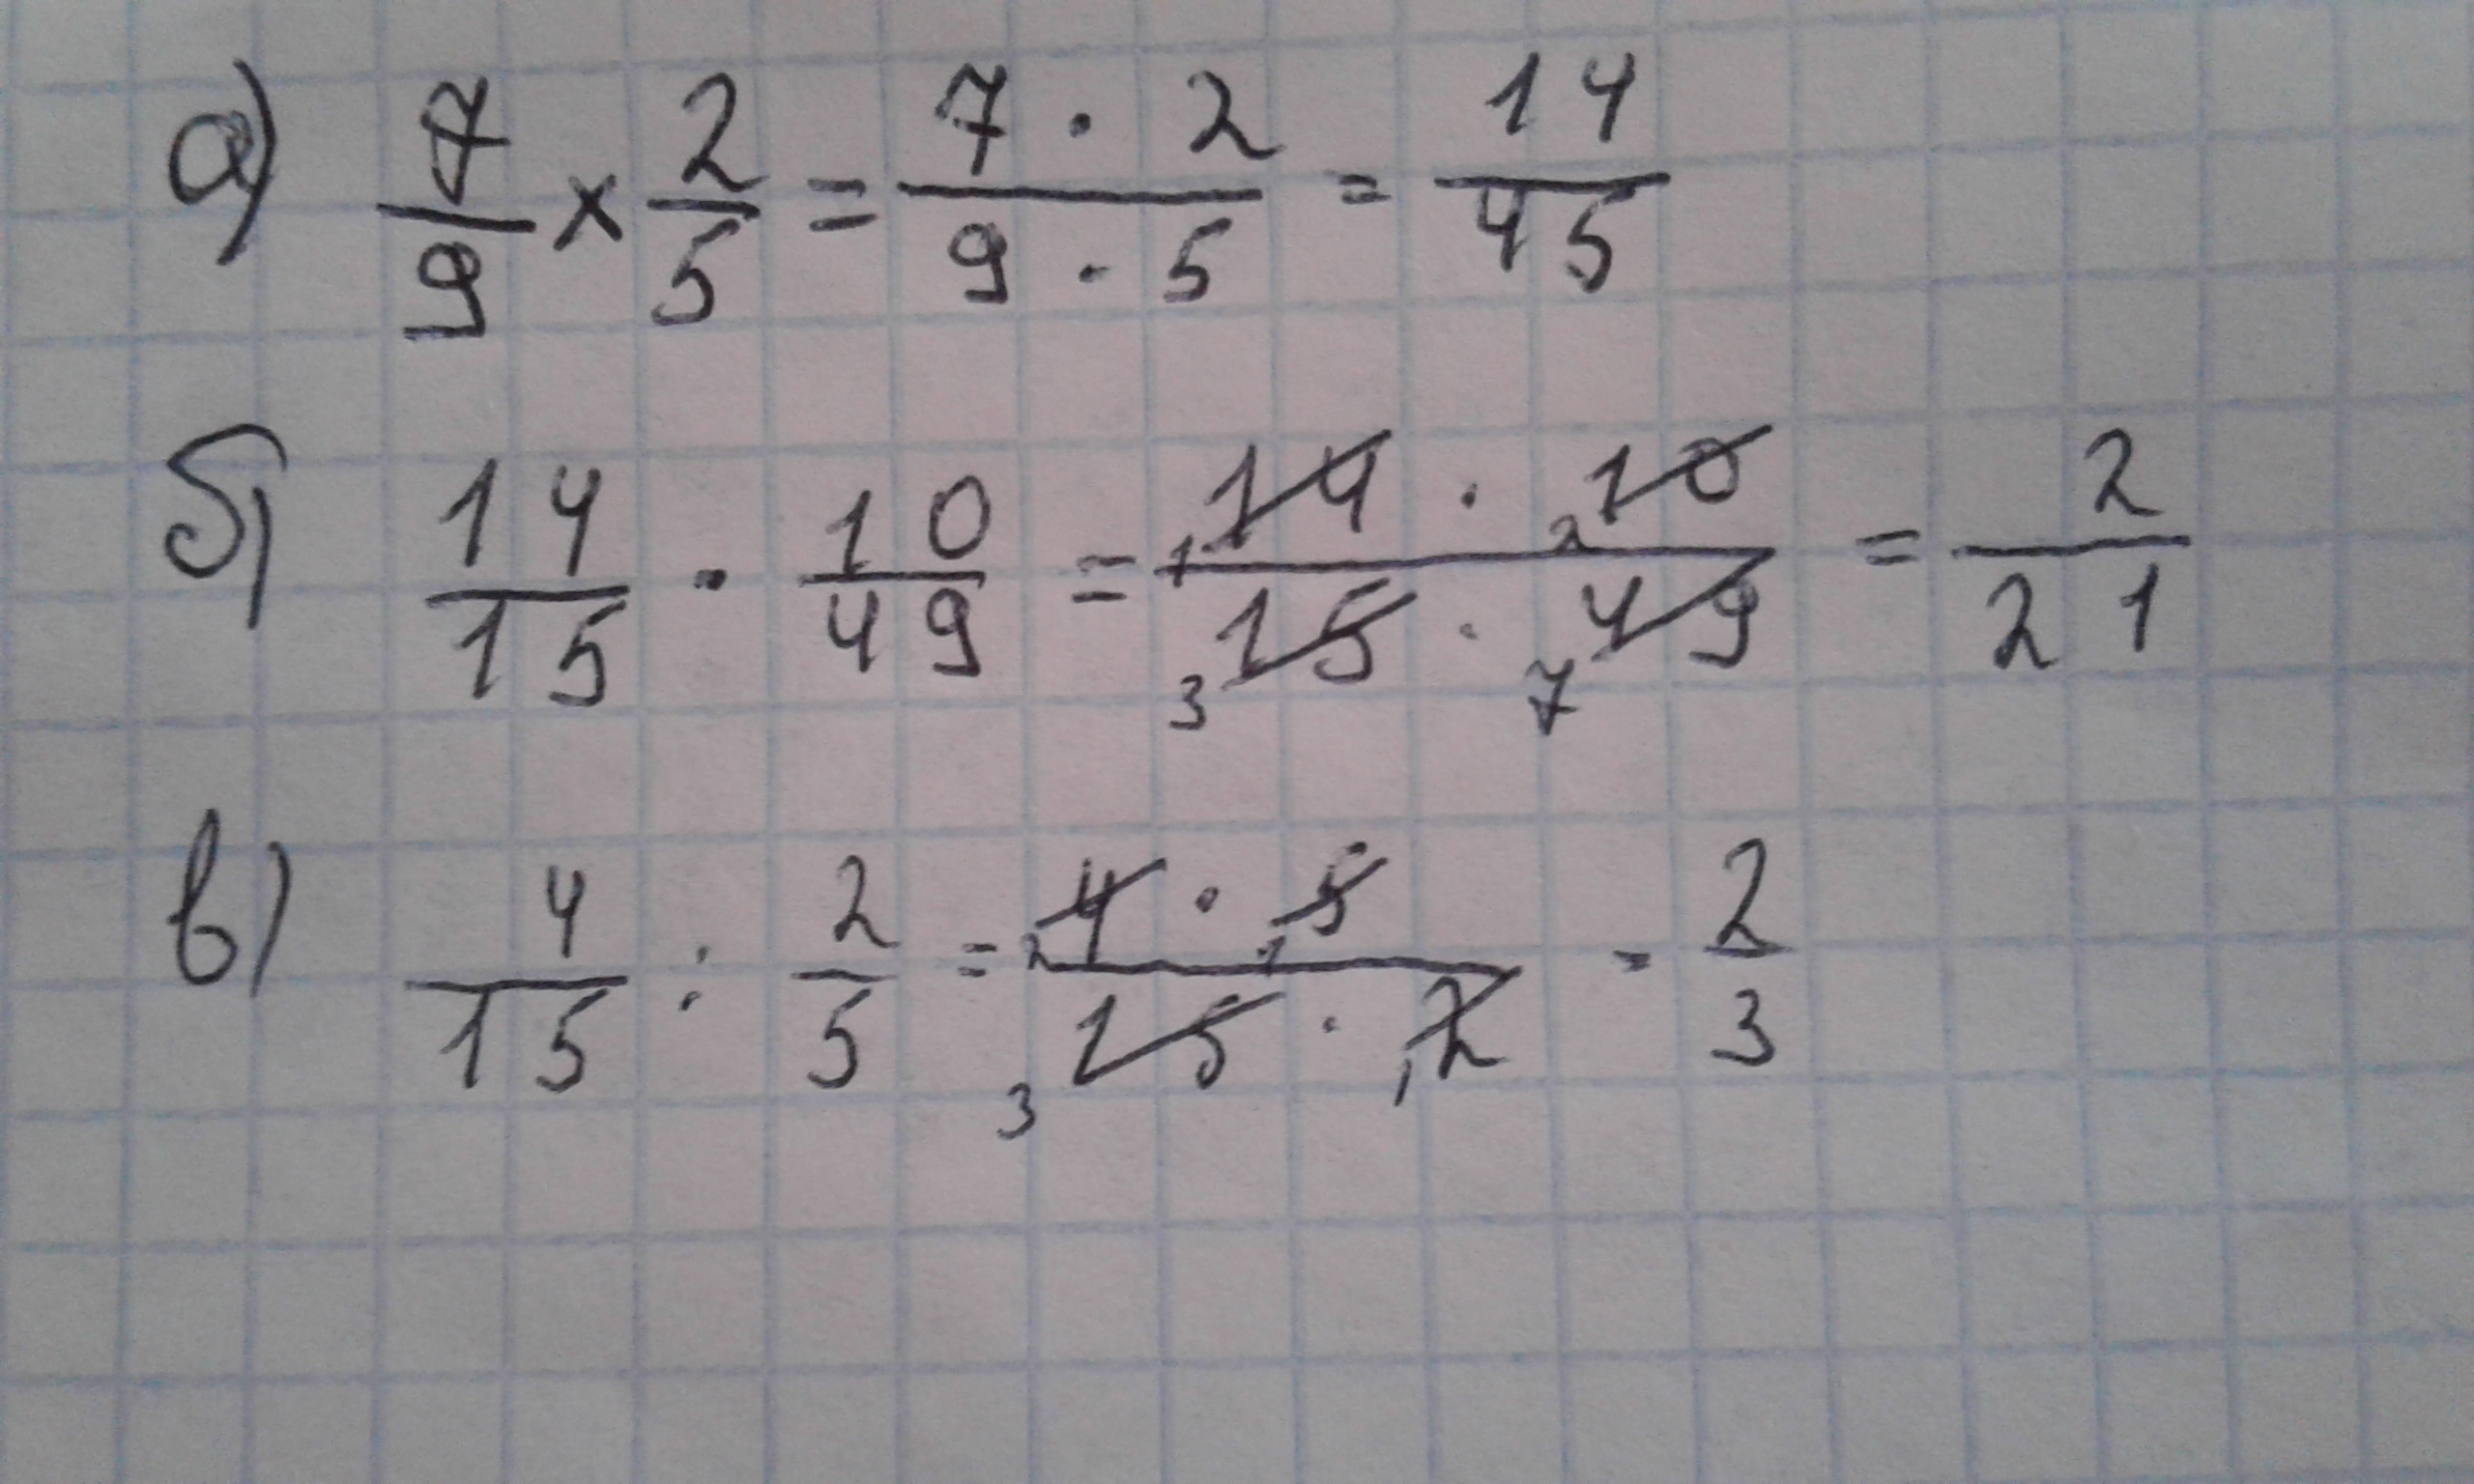 а) 7/9 × 2/5 = 7 · 2 / 9 · 5 = 14/45
б) 14/15 · 10/49 = 1 14 · 2 10 / 3 15 · 7 49 = 2/21
в) 4/15 : 2/5 = 2 4 · 1 5 / 3 15 · 1 2 = 2/3